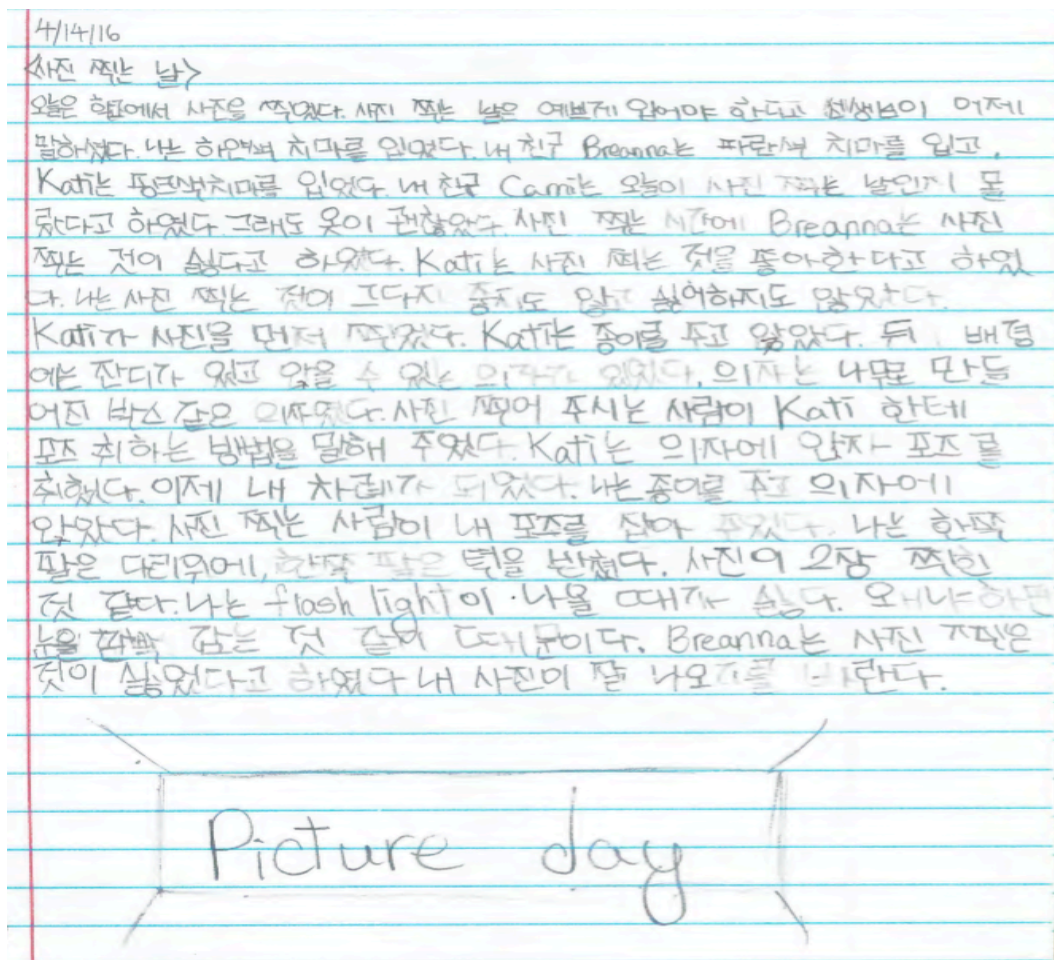 4/14/16
<사진 찍는 날>
오늘은 학교에서 사진을 찍었다. 사진 찍는 날은 예쁘게 입어야 한다고 선생님이 어제
말하셨다. 나는 하얀색 치마를 입었다. 내 친구 Breanna는 파란색 치마를 입고,
Kati는 핑크색치마를 입었다. 내 친구 Cami는 오늘이 사진 찍는 날인지 몰
랐다고 하였다. 그래도 옷이 괜찮았다. 사진 찍는 시간에 Breanna는 사진
찍는 것이 싫다고 하였다. Kati는 사진 찍는 것을 좋아한다고 하였
다. 나는 사진 찍는 것이 그다지 좋지도 않고 싫어하지도 않았다.
Kati가 사진을 먼저 찍었다. Kati는 종이를 주고 앉았다. 뒤 배경
에는 잔디가 있고 앉을 수 있는 의자가 있었다. 의자는 나무로 만들
어진 박스 같은 의자였다. 사진 찍어 주시는 사람이 Kati 한테
포즈 취하는 방법을 말해 주었다. Kati는 의자에 앉자 포즈를
취했다. 이제 내 차례가 되었다. 나는 종이를 주고 의자에
앉았다. 사진 찍는 사람이 내 포즈를 잡아 주었다. 나는 한쪽
팔은 다리위에, 한쪽 팔은 턱을 받쳤다. 사진이 2장 찍힌
것 같다. 나는 flash light이 나올 때가 싫다. 왜냐하면
눈을 깜빡 감는 것 같기 때문이다. Breanna는 사진 찍은
것이 싫었다고 하였다 내 사진이 잘 나오기를 바란다.
Picture day